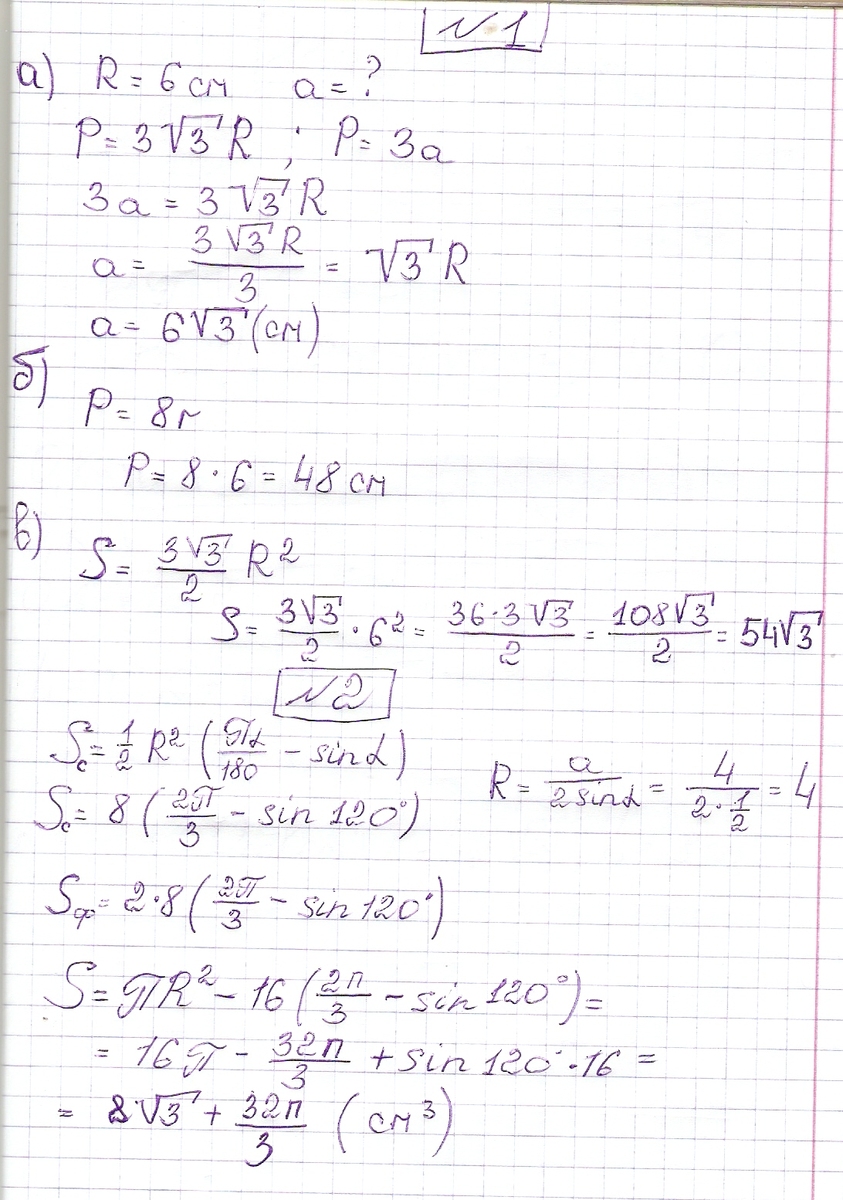 №1
а) R = 6 см a = ?
P = 3√3 R ; P = 3a
3a = 3√3 R
a = 3√3 R / 3 = √3 R
a = 6√3 (см)
б)
P = 8r
P = 8 · 6 = 48 см
в)
S = 3√3 / 2 R²
S = 3√3 / 2 · 6² = 36·3√3 / 2 = 108√3 / 2 = 54√3
№2
Sc = 1/2 R² (πα/180 − sin α)
R = a / 2 sin α = 4 / 2·1/2 = 4
Sc = 8 (2π/3 − sin 120°)
Sф = 2·8 (2π/3 − sin 120°)
S = πR² − 16 (2π/3 − sin 120°) =
= 16π − 32π/3 + sin 120° · 16 =
= 8√3 + 32π/3 (см³)